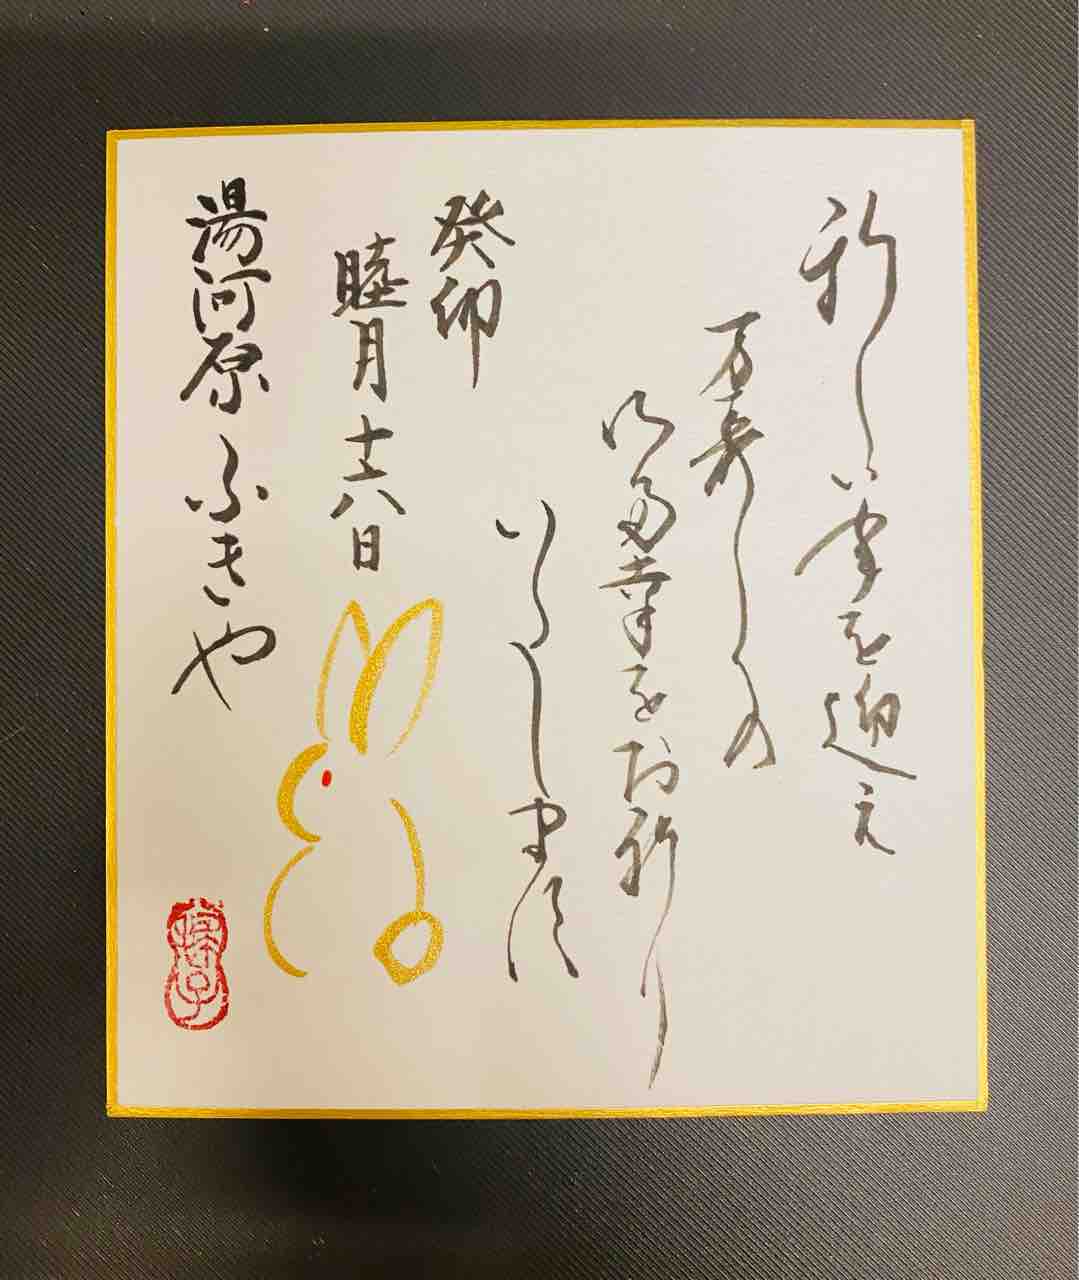 新しい年を迎え
万寿しの
御多幸をお祈り
いたします
癸卯
睦月十六日
湯河原ふきや